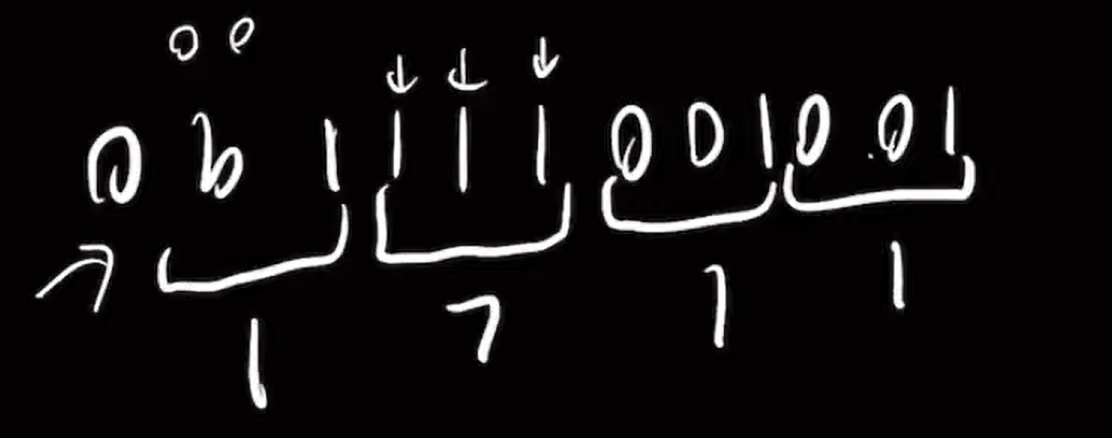 0 0
0 b 1 1 1 1 0 0 1 0 0 1
1 7 1 1